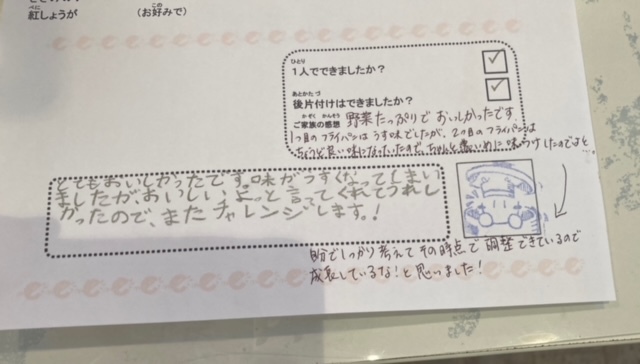 紅しょうが （お好みで）
べに この
ひとり
1人でできましたか？
あとかた づ
後片付けはできましたか？
かぞく かんそう
ご家族の感想 野菜たっぷりで おいしかったです。
1つ目のフライパンは うす味でしたが、2つ目のフライパンは
ちょうど良い味になっていたので、ちゃんと 味つけしたのですよ。
とてもおいしかったです。味がうすくなってしまい
ましたが、おいしいよ。と言ってくれてうれし
かったので、またチャレンジします。！
自分でしっかり考えて その時点で 調整できているので
成長しているな！と思いました！